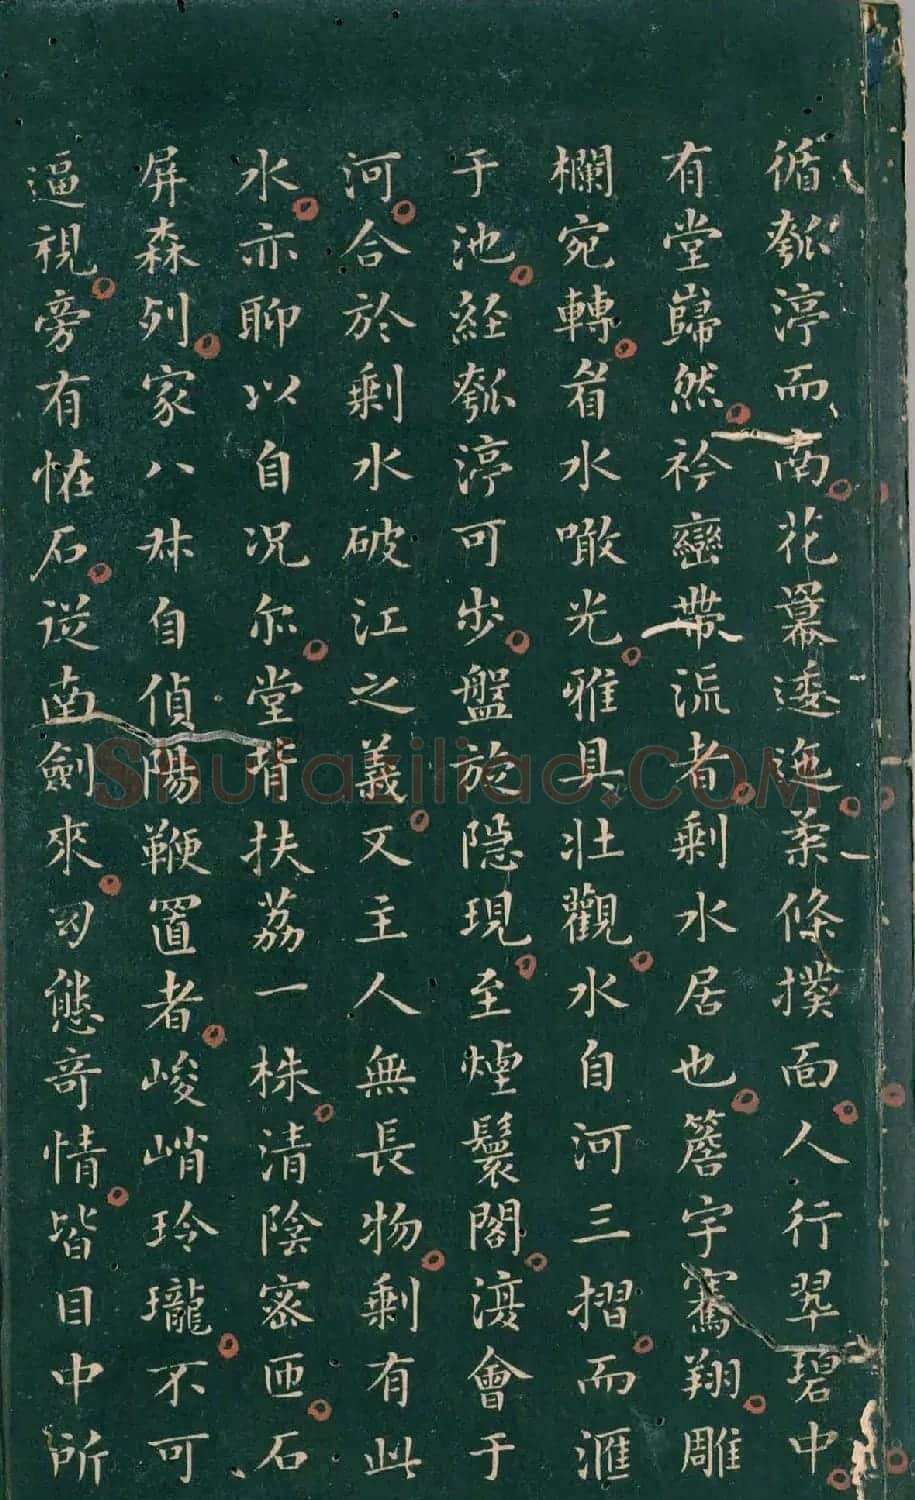 循瓠渟而南花羃逶迤葇條撲面人行翠碧中
有堂巋然衿巒帶流者剩水居也簷宇騫翔雕
欄宛轉眉水噉光雅具壯觀水自河三摺而滙
于池經瓠渟可步盤旋隱現至煙鬟閣濅會于
河合於剩水破江之義文主人無長物剩有此
水亦聊以自况尔堂背扶荔一株清陰密匝石
屏森列家八叔自偵陽鞭置者峻峭玲瓏不可
逼視旁有恠石從南劍來幻態奇情皆目中所
Shufaziliao.COM